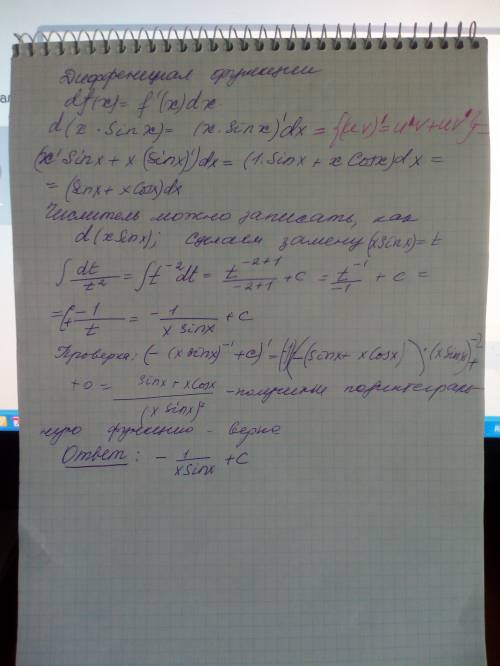 Дифференциал функции
df(x) = f'(x)dx
d(x · sinx) = (x · sinx)'dx = {(uv)' = u'v + uv'} =
(x' · sinx + x (sinx)')dx = (1 · sinx + x cosx)dx =
= (sinx + x cosx)dx
Числитель можно записать, как
d(x sinx); сделаем замену (x sinx) = t
∫ dt/t² = ∫ t⁻² dt = t⁻²⁺¹/-2+1 + c = t⁻¹/-1 + c =
= -1/t = - 1/x sinx + c
Проверка: (- (x sinx)⁻¹ + c)' = (-1)(-(sinx + x cosx)) · (x sinx)⁻² +
+ 0 = sinx + x cosx/(x sinx)² - получение подинтеграль
ную функцию - верно
Ответ: - 1/x sinx + c